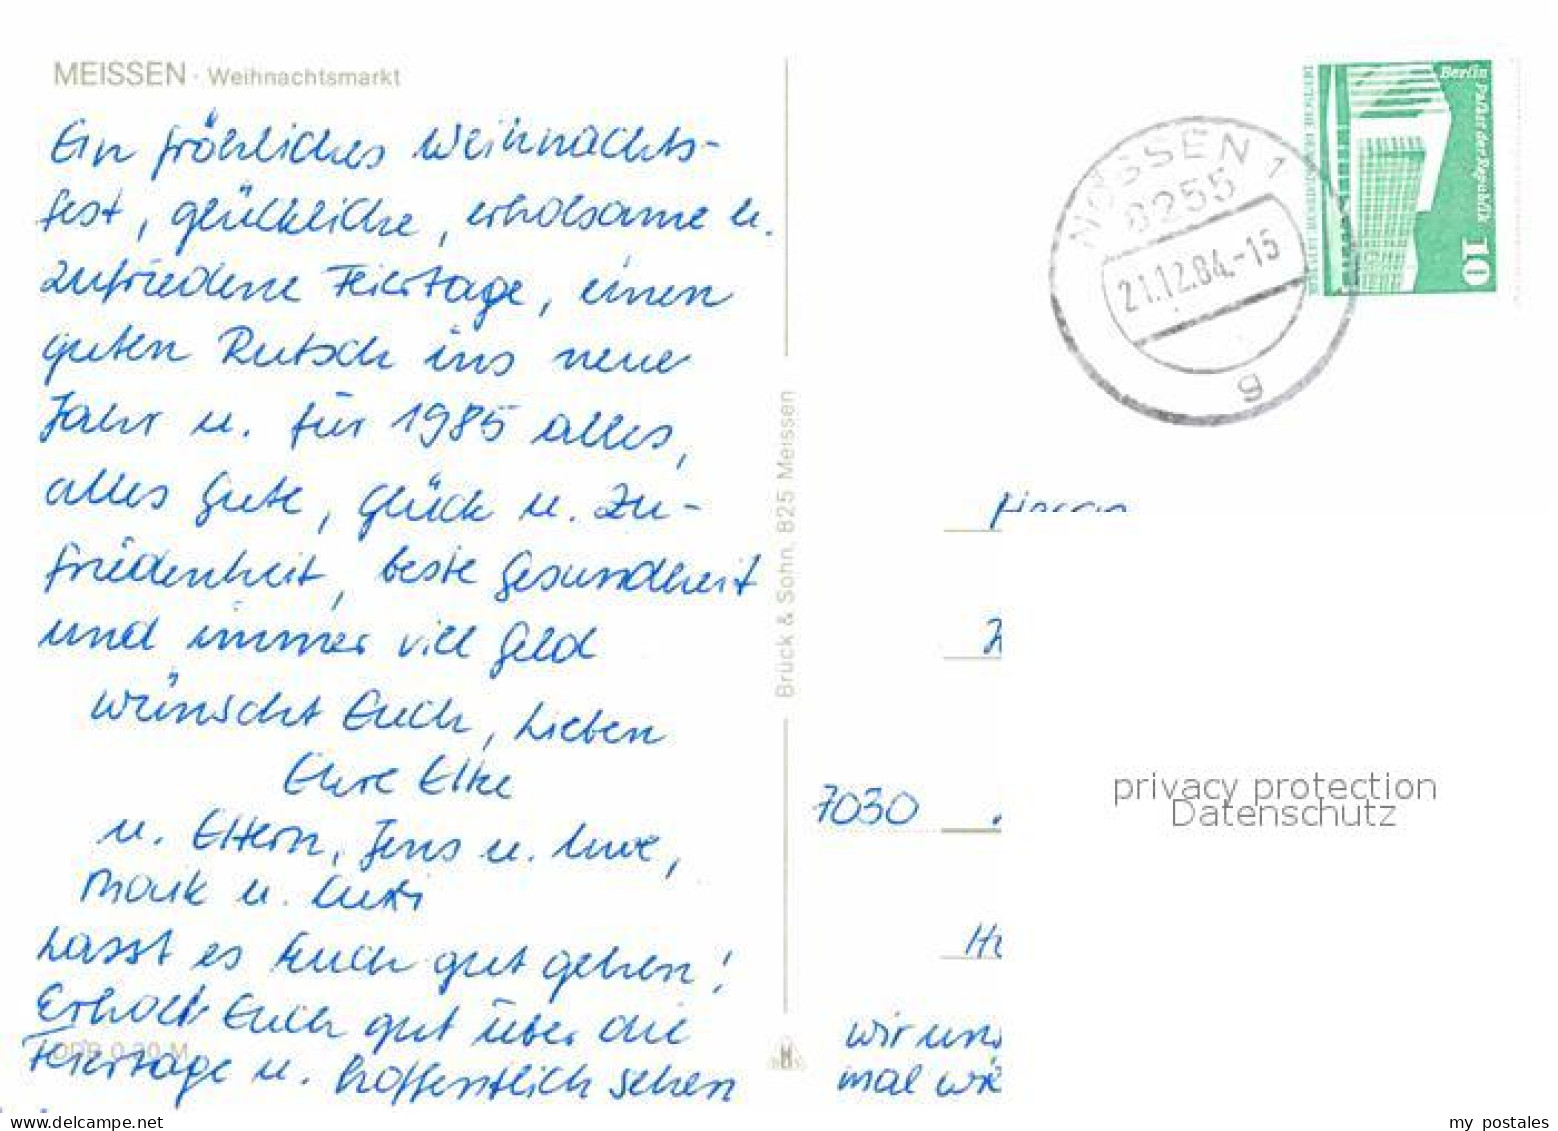 MEISSEN · Weihnachtsmarkt
Ein fröhliches Weihnachts-
fest, glückliche, erholsame u.
zufriedene Feiertage, einen
guten Rutsch ins neue
Jahr u. für 1985 alles,
alles Gute, Glück u. Zu-
friedenheit, beste Gesundheit
und immer viel Geld
wünscht Euch, Lieben
Eure Elke
u. Eltern, Jens u. Uwe,
Maik u.
Lasst es Euch gut gehen!
Erholt Euch gut über die
Feiertage u. hoffentlich sehen
wir uns
mal wie
DDR 0,20 M
Brück & Sohn, 825 Meissen
NOSSEN 1
8255
21.12.84.-15
g
Berlin Palast der Republik
10
DEUTSCHE DEMOKRATISCHE REPUBLIK
7030
privacy protection
Datenschutz
my postales